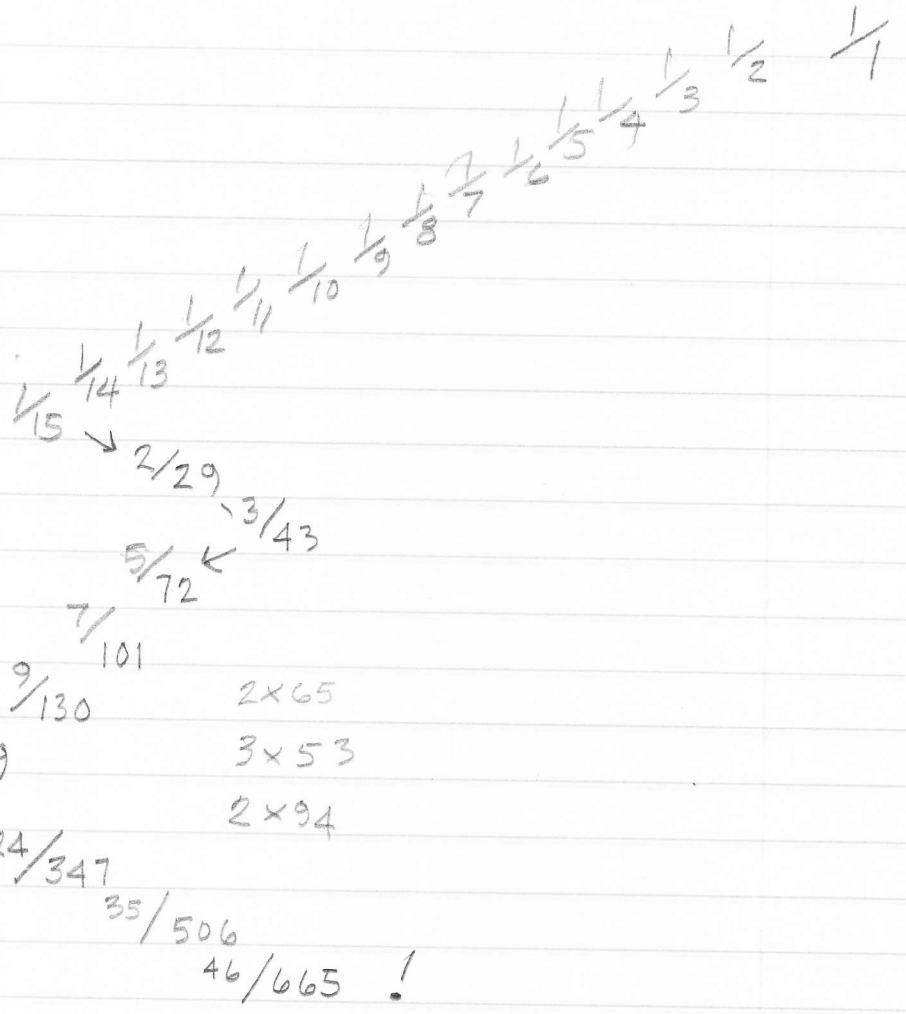 1/1
1/2
1/3
1/4
1/5
1/6
1/7
1/8
1/9
1/10
1/11
1/12
1/13
1/14
1/15
→ 2/29
3/43
5/72 ←
7/101
9/130 2×65
9 3×53
2×94
24/347
35/506
46/665 !